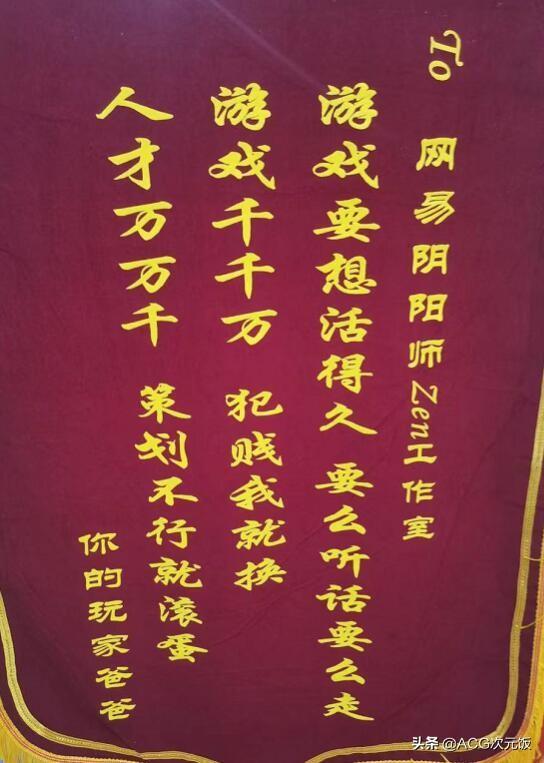 To 网易阴阳师Zen工作室
游戏要想活得久 要么听话要么走
游戏千千万 犯贱我就换
人才万万千 策划不行就滚蛋
你的玩家爸爸
头条 @ACG次元饭